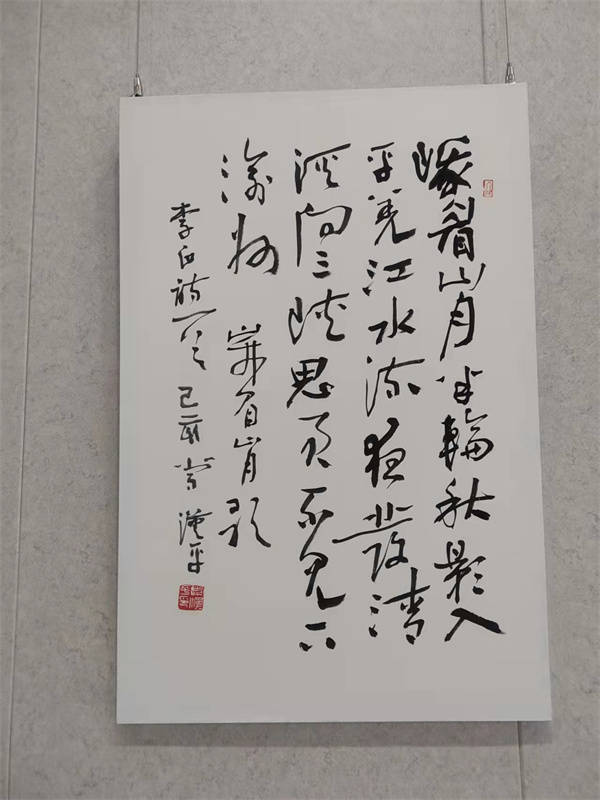 峨眉山月半輪秋影入
平羌江水流夜發清
溪向三峽思君不見下
渝州 峩眉山月歌
李白詩一首 己亥 漢平